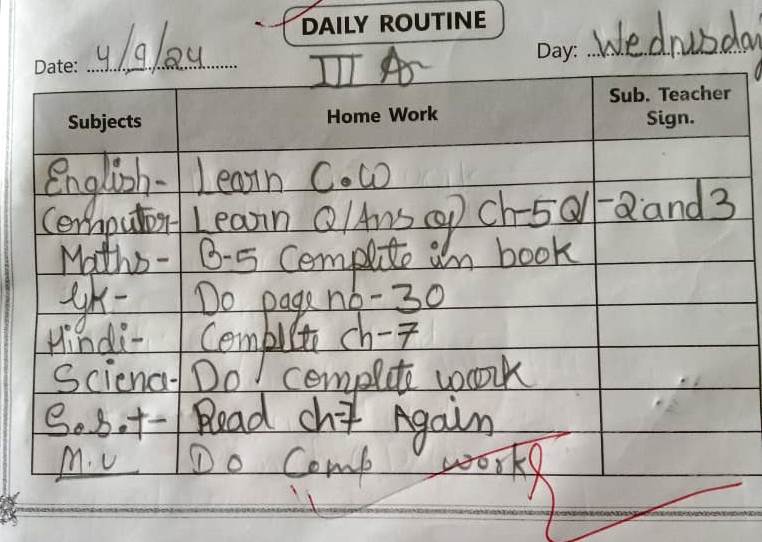 DAILY ROUTINE
Date: 4/9/24 Day: Wednusday
III A
Subjects Home Work Sub. Teacher Sign.
English- Learn C.W
Computor- Learn Q/Ans of Ch-5 Q1-2 and 3
Maths- B-5 Complite in book
GK- Do page no-30
Hindi- Complite ch-7
Sciena- Do complete woork
S.s.t- Read ch-7 Again
M.V Do Comp work